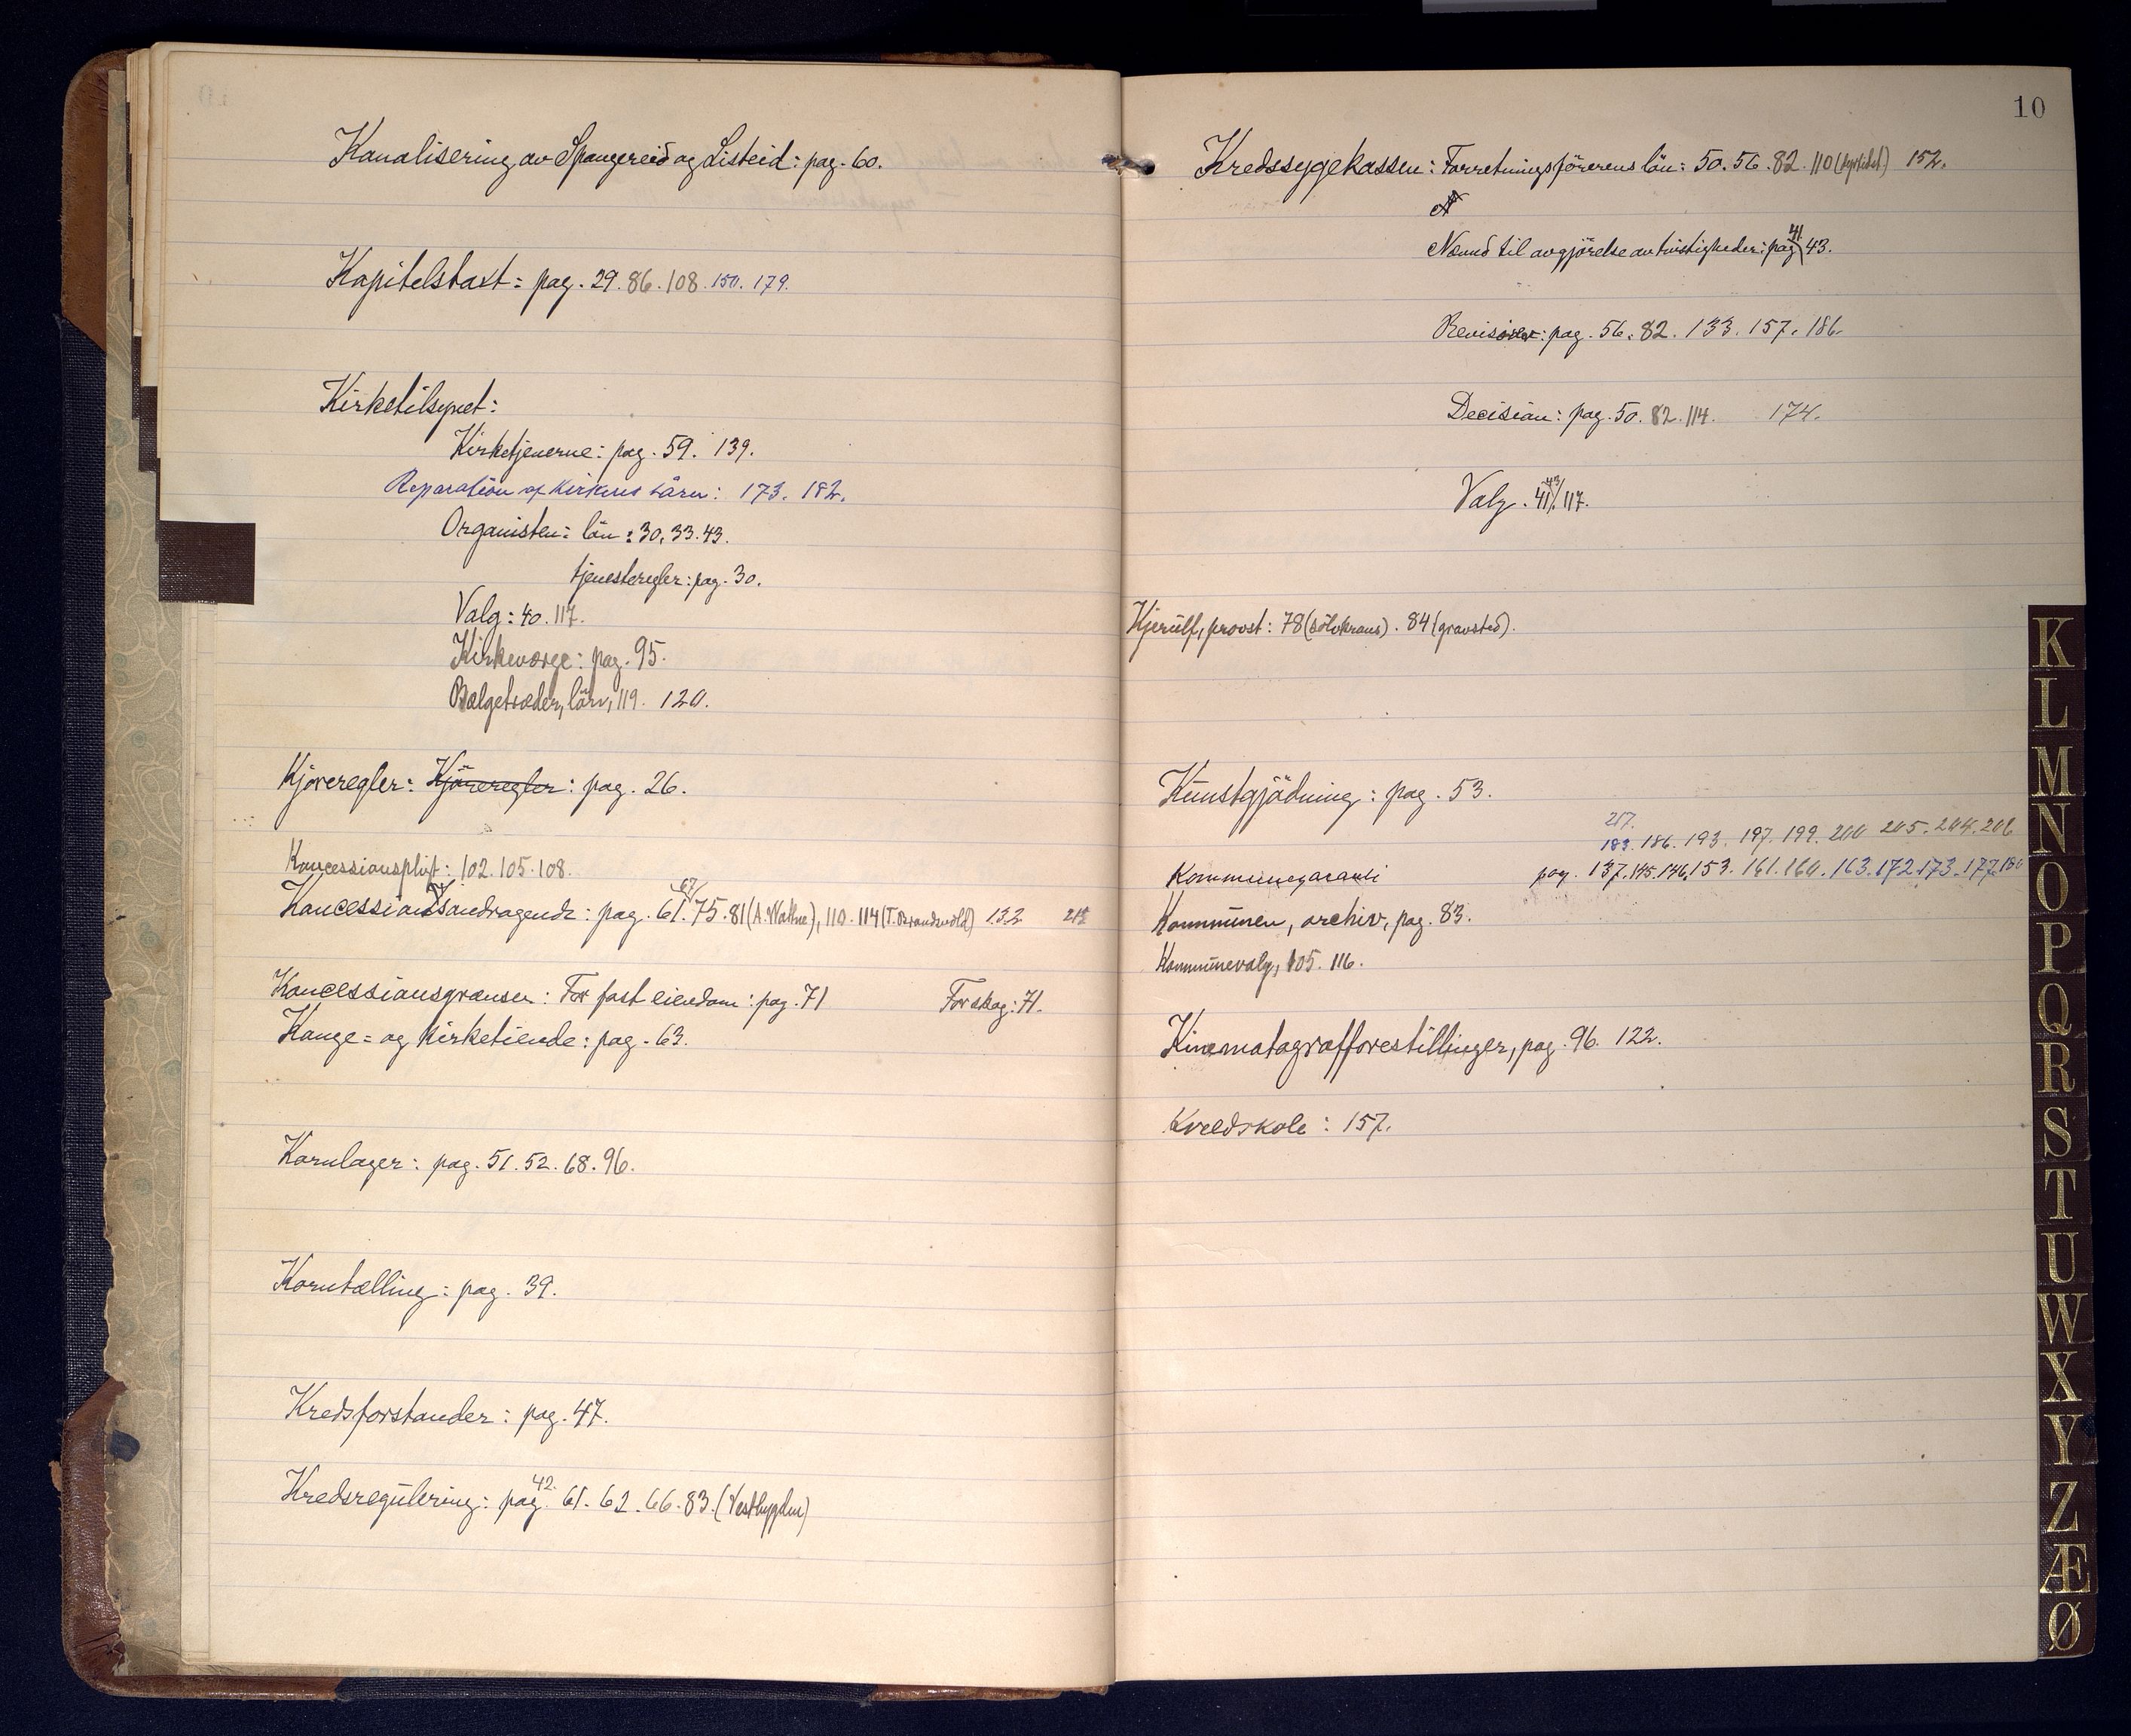 Kanalisering av Spangereid og Listeid: pag. 60.
Kapitelstakst: pag. 29. 86. 108. 150. 179.
Kirketilsynet:
Kirketjenerne: pag. 59. 139.
Reparation af Kirkens tårn: 173. 182.
Organisten: lön: 30. 33. 43.
tjenesteregler: pag. 30.
Valg: 40. 117.
Kirkeværge: pag. 95.
Bælgetræder, lön, 119. 120.
Kjöreregler: Kjöreregler: pag. 26.
Koncessionspligt: 102. 105. 108.
67
Koncessionsandragende: pag. 61. 75. 81 (A. Wathne), 110. 114 (T. Brandsvold) 132
Koncessionsgrænsen: For fast eiendom: pag. 71 For skog: 71.
Konge- og Kirketiende: pag. 63.
Kornlager: pag. 51. 52. 68. 96.
Korntælling: pag. 39.
Kredsforstander: pag. 47.
42.
Kredsregulering: pag. 61. 62. 66. 83. (Vestbygden)
10
Kredssygekassen: Forretningsförerens lön: 50. 56. 82. 110 152.
N
41.
Nævnd til avgjörelse av tvistigheder: pag 43.
Revision: pag. 56. 82. 133. 157. 186.
Decision: pag. 50. 82. 114. 174.
43
Valg. 41. 117.
Kjerülf, provst: 78 (sölvkrans). 84 (gravsted).
Kunstgjödning: pag. 53.
217.
183. 186. 193. 197. 199. 200 205. 204. 206
Kommunegaranti pag. 137. 145. 146. 153. 161. 160. 163. 172. 173. 177. 180
Kommunen, archiv, pag. 83.
Kommunevalg, 105. 116.
Kinematografforestillinger, pag. 96. 122.
Kveldskole: 157.
K
L
M
N
O
P
Q
R
S
T
U
W
X
Y
Z
Æ
Ø